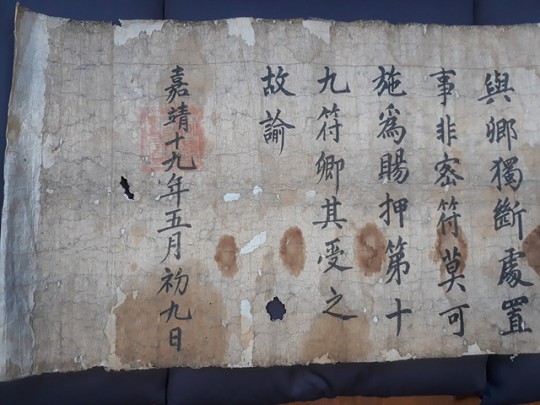 與卿獨斷處置
事非密符莫可
施爲賜押第十
九符卿其受之
故諭
嘉靖十九年五月初九日